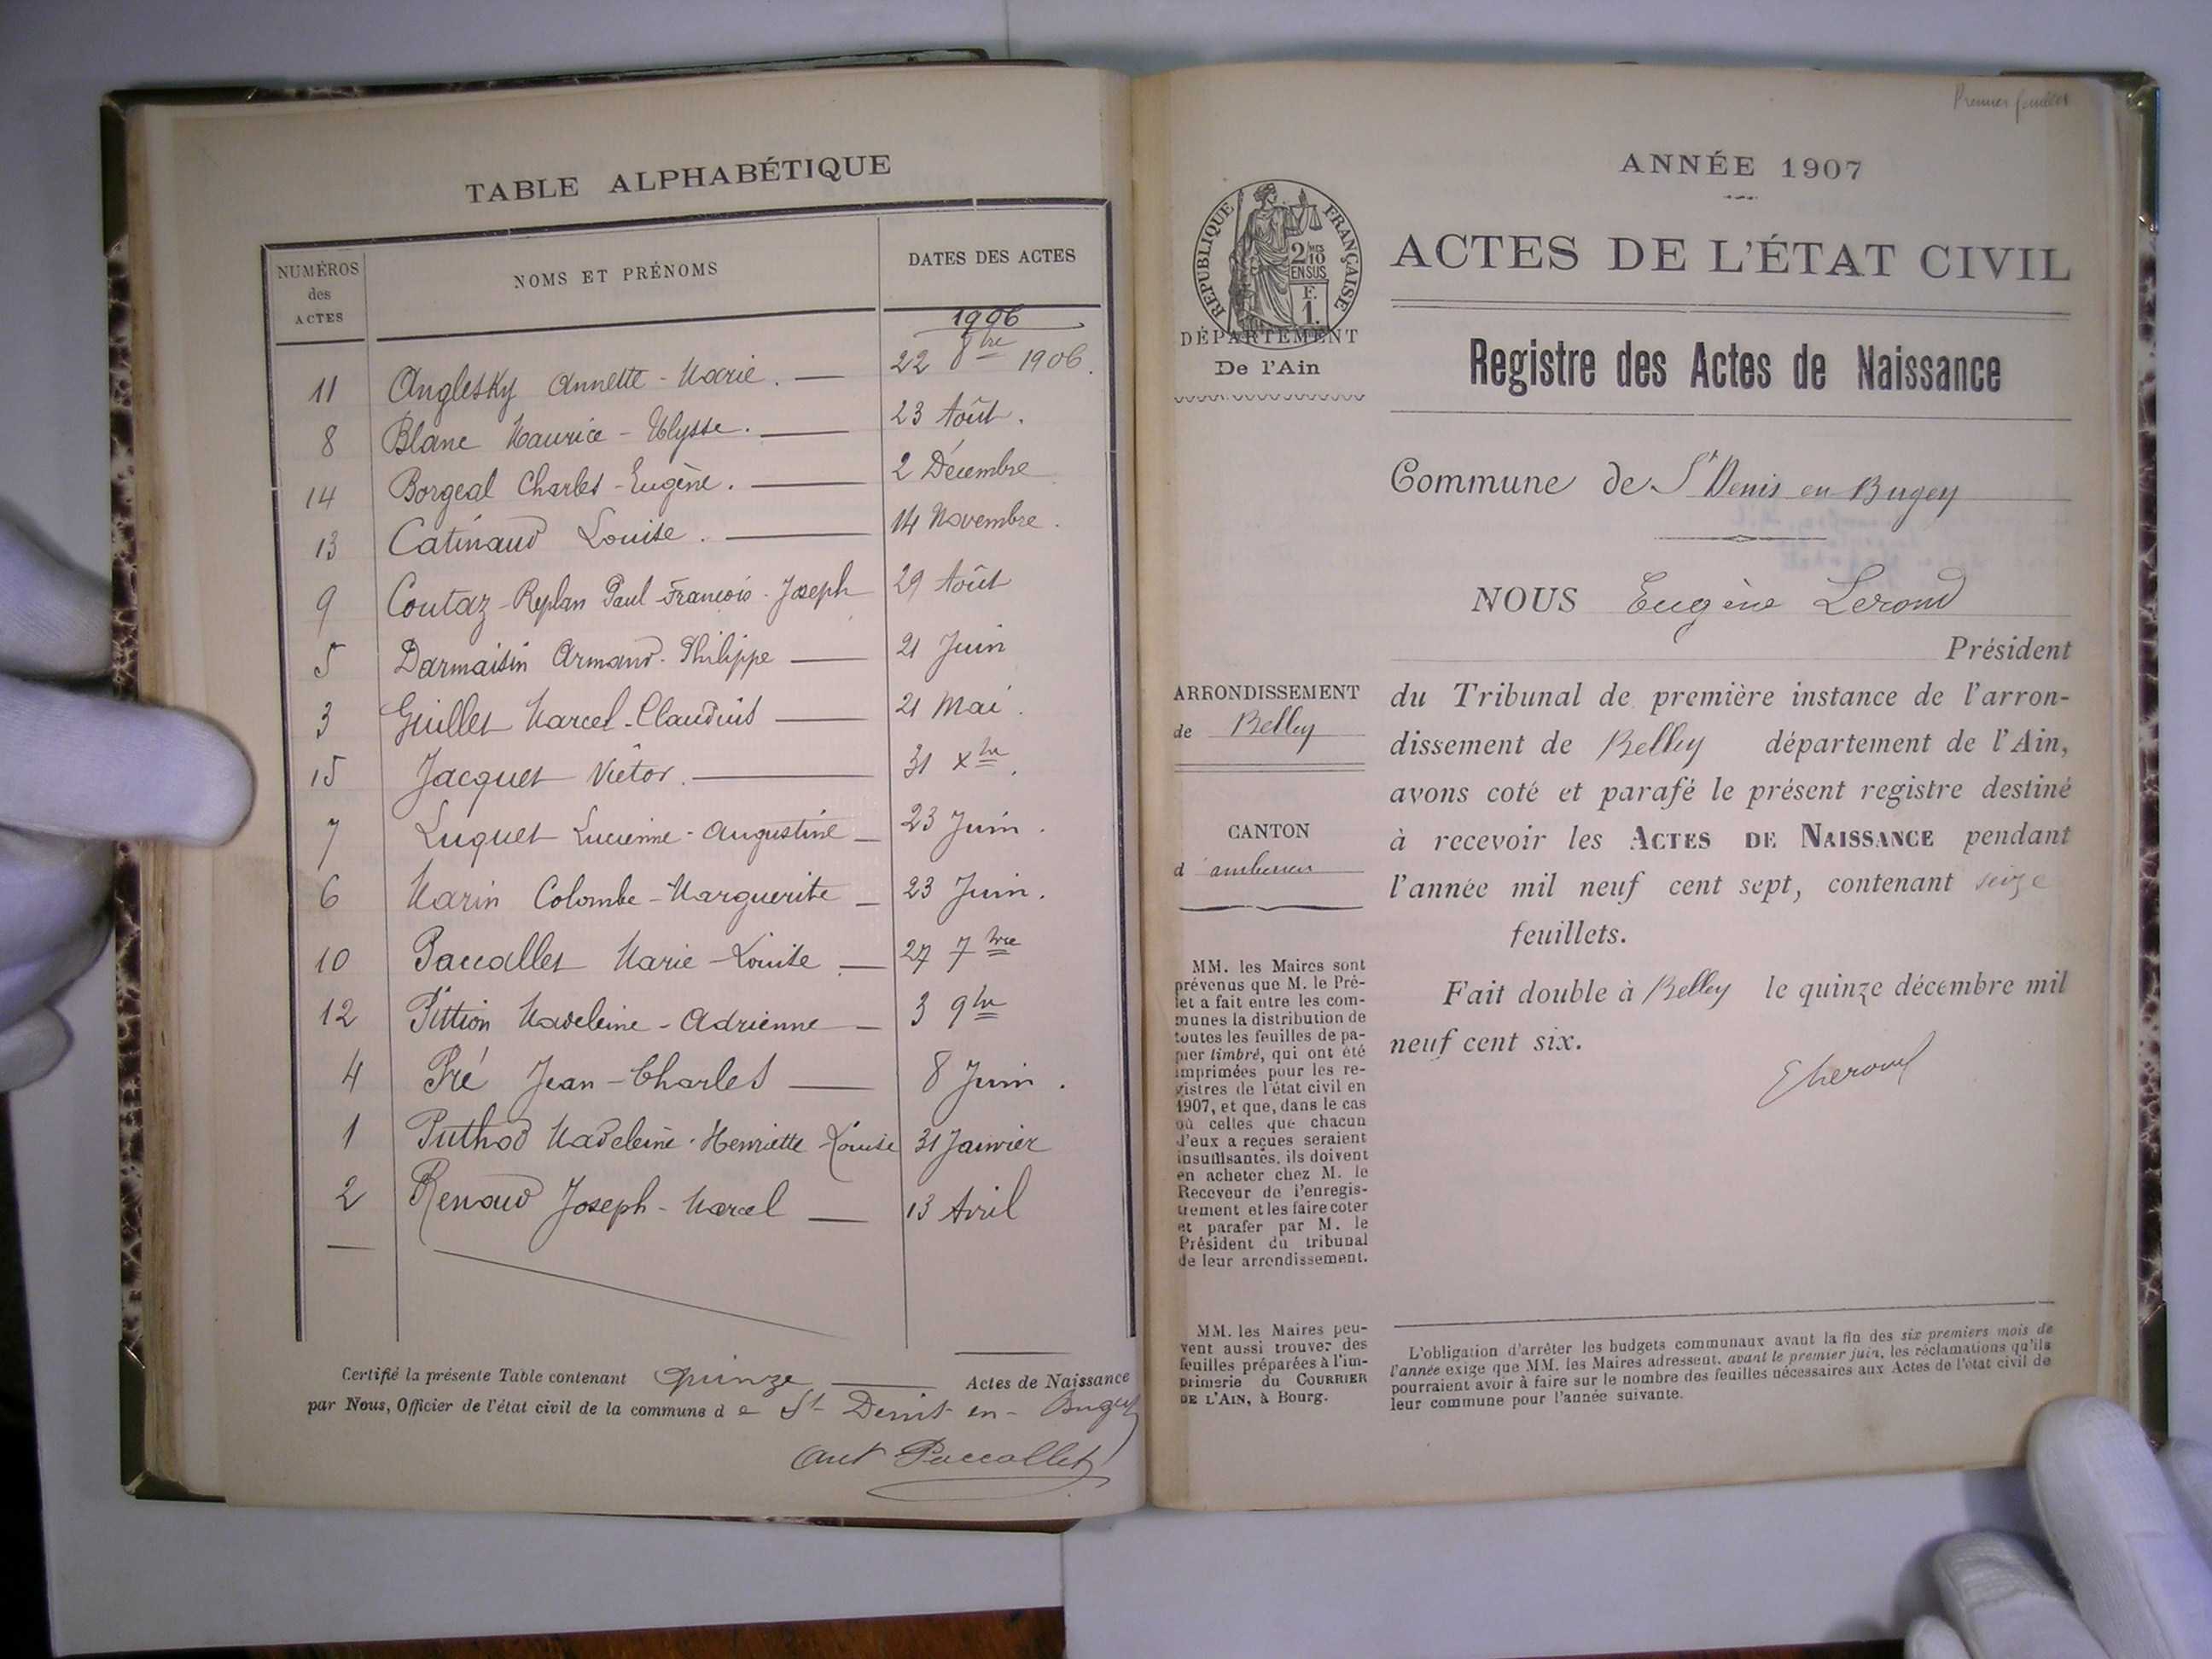 TABLE ALPHABÉTIQUE
NUMÉROS
des
ACTES
NOMS ET PRÉNOMS
DATES DES ACTES
1906
11 Anglesky Annette - Marie. 22 8bre 1906.
8 Blanc Maurice - Ulysse. 23 Août.
14 Borgeal Charles - Eugène. 2 Décembre
13 Catinaud Louise. 14 Novembre.
9 Coutaz - Replan Paul - François - Joseph 29 Août
5 Darmaisin Armand - Philippe 21 Juin
3 Guillet Marcel - Claudius 21 Mai.
15 Jacquet Victor. 31 Xbre.
7 Luquet Lucienne - Augustine 23 Juin.
6 Marin Colombe - Marguerite 23 Juin.
10 Paccallet Marie - Louise 27 7bre
12 Pittion Madeleine - Adrienne 3 9bre
4 Pré Jean - Charles 8 Juin.
1 Puthod Madeleine - Henriette Louise 31 Janvier
2 Renaud Joseph - Marcel 13 Avril
Certifié la présente Table contenant quinze Actes de Naissance
par Nous, Officier de l'état civil de la commune de St Denis en - Bugey
Ant Paccallet
Premier feuillet
ANNÉE 1907
RÉPUBLIQUE FRANÇAISE
2/10
EN SUS
F.
1.
DÉPARTEMENT
De l'Ain
ACTES DE L'ÉTAT CIVIL
Registre des Actes de Naissance
Commune de St Denis en Bugey
NOUS Eugène Lerond
Président
du Tribunal de première instance de l'arron-
dissement de Belley département de l'Ain,
avons coté et parafé le présent registre destiné
à recevoir les ACTES DE NAISSANCE pendant
l'année mil neuf cent sept, contenant seize
feuillets.
Fait double à Belley le quinze décembre mil
neuf cent six.
ARRONDISSEMENT
de Belley
CANTON
d'
MM. les Maires sont
prévenus que M. le Pré-
fet a fait entre les com-
munes la distribution de
toutes les feuilles de pa-
pier timbré, qui ont été
imprimées pour les re-
gistres de l'état civil en
1907, et que, dans le cas
où celles que chacun
d'eux a reçues seraient
insuffisantes, ils doivent
en acheter chez M. le
Receveur de l'enregis-
trement et les faire coter
et parafer par M. le
Président du tribunal
de leur arrondissement.
MM. les Maires peu-
vent aussi trouver des
feuilles préparées à l'im-
primerie du COURRIER
DE L'AIN, à Bourg.
L'obligation d'arrêter les budgets communaux avant la fin des six premiers mois de
l'année exige que MM. les Maires adressent, avant le premier juin, les réclamations qu'ils
pourraient avoir à faire sur le nombre des feuilles nécessaires aux Actes de l'état civil de
leur commune pour l'année suivante.